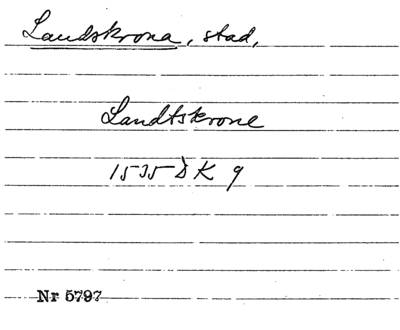 Landskrona, stad,
Landtskrone
1535 DK 9
Nr 5797